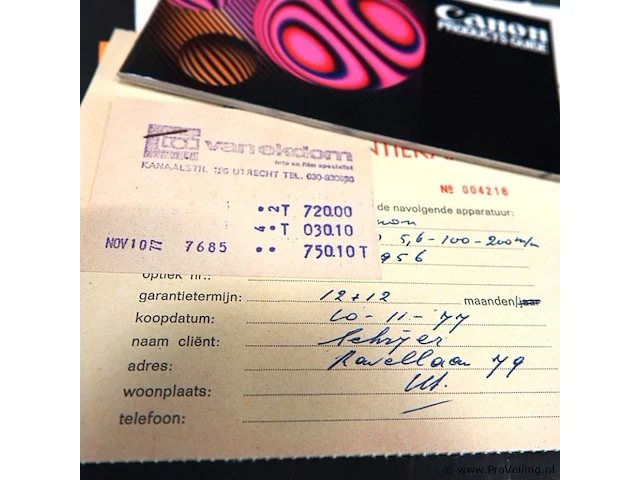 Canon
PRODUCTS GUIDE
van ekdom
foto en film specialist
KANAALSTR. 186 UTRECHT TEL. 030-930893
2 T 720.00
4 T 030.10
NOV 10 77 7685 750.10 T
№ 004218
de navolgende apparatuur:
5,6-100-200 m/m
956
optiek nr.:
garantietermijn: 12+12 maanden/jaar
koopdatum: 10-11-77
naam cliënt: Schijer
adres: Ravellaan 79
woonplaats: Ut.
telefoon:
© www.ProVeiling.nl